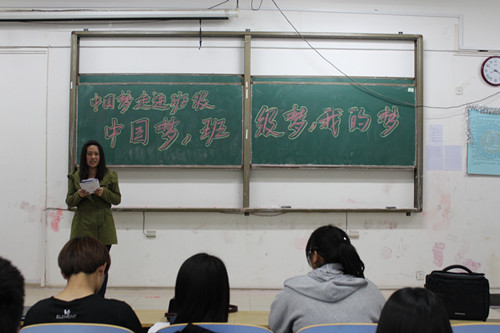 中国梦走进班级
中国梦，班级梦，我的梦
ELEMENT